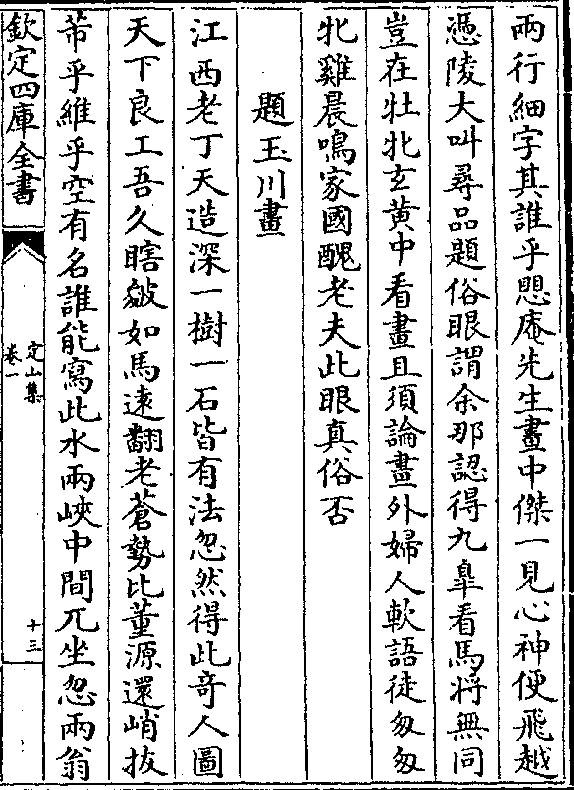 兩行細字其誰乎愳庵先生畫中傑一見心神便飛越
憑陵大叫尋品題俗眼謂余那認得九臯看馬將無同
豈在牡牝玄黄中看畫且須論畫外婦人軟語徒匆匆
牝雞晨鳴家國醜老夫此眼真俗否
題玉川畫
江西老丁天造深一樹一石皆有法忽然得此竒人圖
天下良工吾久瞎皴如馬逺翻老蒼勢比董源還峭拔
芾乎維乎空有名誰能寫此水兩峽中間兀坐忽兩翁
欽定四庫全書
定山集
卷一
十三